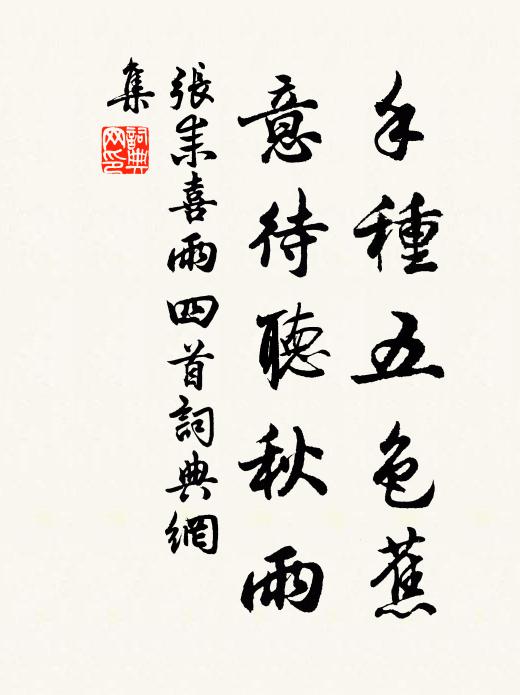 手種五色蕉
意待聽秋雨
張耒喜雨四首詞典網
集
詞典
网印